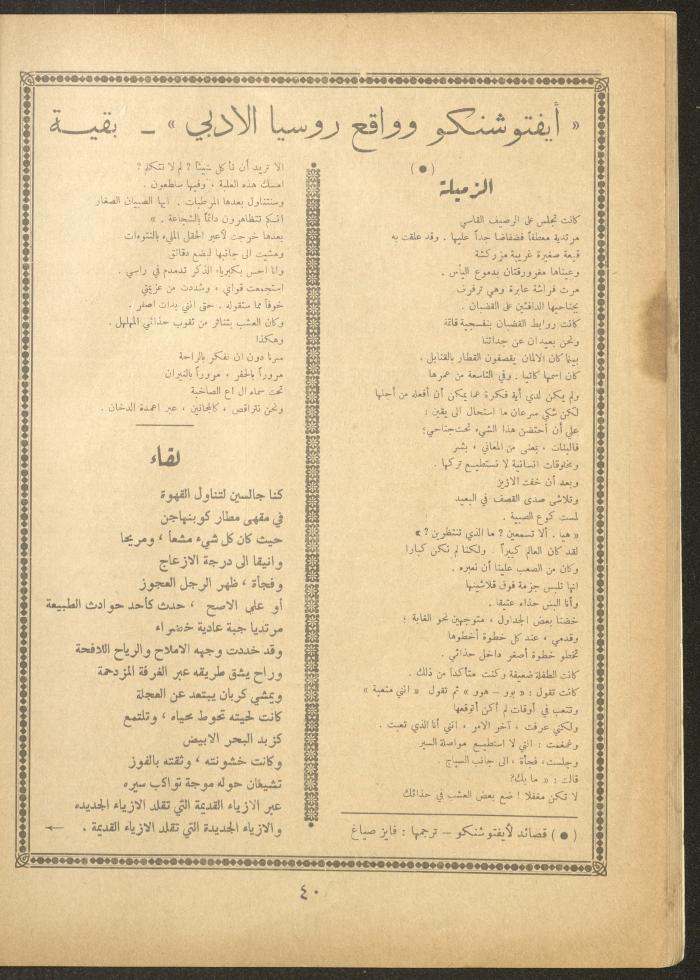 « أيفتوشنكو وواقع روسيا الادبي » ــ بقيـــة
( ● )
الزميلة
كانت تجلس على الرصيف القاسي
مرتدية معطفاً فضفاضا جداً عليها . وقد علقت به
قبعة صغيرة غريبة مزركشة
وعيناها مغرورقتان بدموع اليأس .
مرت فراشة عابرة وهي ترفرف
بجناحيها الدافئين على القضبان .
كانت روابط القضبان بنفسجية قاتمة
ونحن بعيدان عن جداتنا
بينما كان الالمان يقصفون القطار بالقنابل .
كان اسمها كاتيا . وفي التاسعة من عمرها
ولم يكن لدي أية فكرة عما يمكن أن أفعله من أجلها
لكن شكي سرعان ما استحال الى يقين :
علي أن أحتضن هذا الشيء تحت جناحي؛
فالبنات ، بمعنى من المعاني ، بشر
ومخلوقات انسانية لا نستطيع تركها .
وبعد أن خفت الازيز
وتلاشى صدى القصف في البعيد
لمست كوع الصبية .
« هيا . ألا تسمعين ? ما الذي تنتظرين ? »
لقد كان العالم كبيراً . ولكننا لم نكن كبارا
وكان من الصعب علينا أن نعبره .
انها تلبس جزمة فوق قلاشينها
وأنا البس حذاء عتيقا .
خضنا بعض الجداول ، متوجهين نحو الغابة ؛
وقدمي ، عند كل خطوة أخطوها
تخطو خطوة أصغر داخل حذائي .
كانت الطفلة ضعيفة وكنت متأكداً من ذلك .
كانت تقول : « بور – هور » ثم تقول « انني متعبة »
وتتعب في أوقات لم أكن أتوقعها
ولكني عرفت ، آخر الامر ، انني أنا الذي تعبت .
وغمغمت : انني لا استطيع مواصلة السير
وجلست، فجأة ، الى جانب السياج .
قالت : « ما بك?
لا تكن مغفلا ! ضع بعض العشب في حذائك
( ● ) قصائد لأيفتوشنكو – ترجمها : فايز صياغ
الا تريد أن تأكل شيئاً ? لم لا تتكلم ?
امسك هذه العلبة ، وفيها سلطعون .
وسنتناول بعدها المرطبات . ايها الصبيان الصغار
انكم تتظاهرون دائماً بالشجاعة . »
بعدها خرجت لأعبر الحقل المليء بالنتوءات
ومشيت الى جانبها لبضع دقائق
وانا احس بكبرياء الذكر تدمدم في راسي .
استجمعت قواي ، وشددت من عزيمتي
خوفاً مما ستقوله . حتى انني بدأت اصفر .
وكان العشب يتناثر من ثقوب حذائي المهلهل .
وهكذا
سرنا دون ان نفكر بالراحة
مروراً بالحفر ، مروراً بالنيران
تحت سماء ال اع الصاخبة
ونحن نتراقص ، كالمجانين ، عبر اعمدة الدخان .
لقاء
كنا جالسين لتناول القهوة
في مقهى مطار كوبنهاجن
حيث كان كل شيء مشعاً ، ومريحا
وانيقا الى درجة الازعاج
وفجأة ، ظهر الرجل العجوز
أو على الاصح ، حدث كأحد حوادث الطبيعة
مرتديا جبة عادية خضراء
وقد خددت وجهه الاملاح والرياح اللافحة
وراح يشق طريقه عبر الغرفة المزدحمة
ويمشي كربان يبتعد عن العجلة
كانت لحيته تحوط محياه ، وتلتمع
كزبد البحر الابيض
وكانت خشونته ، وثقته بالفوز
تشيعان حوله موجة تواكب سيره
عبر الازياء القديمة التي تقلد الازياء الجديدة
والازياء الجديدة التي تقلد الازياء القديمة . ←
٤٠